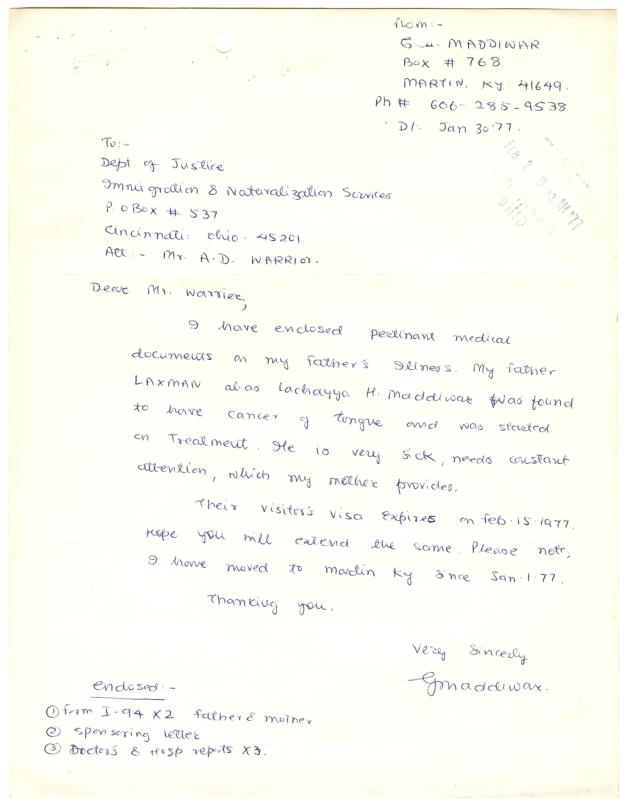 from:-
G. M. MADDIWAR
BOX # 768
MARTIN, KY. 41649.
Ph # 606-285-9538
D/. Jan 30.77.
FEB 2 9 33 AM '77
OHIO
To:-
Dept of Justice
Immigration & Naturalization Services
P.O Box # 537
Cincinnati: Ohio. 45201
Att:- Mr. A.D. WARRIOR.
Dear Mr. Warrier,
I have enclosed pertinant medical
documents on my father's illness. My father
LAXMAN alias Lachayya H. Maddiwar was found
to have cancer of tongue and was started
on Treatment. He is very sick, needs constant
attention, which my mother provides.
Their visitor's visa expires on feb.15.1977.
Hope you will extend the same. Please note,
I have moved to Martin Ky since Jan.1.77.
Thanking you.
Very Sincerly
GMaddiwar.
enclosed:-
① form I-94 X2 father & mother
② sponsoring letter
③ Doctor's & Hosp repots X3.